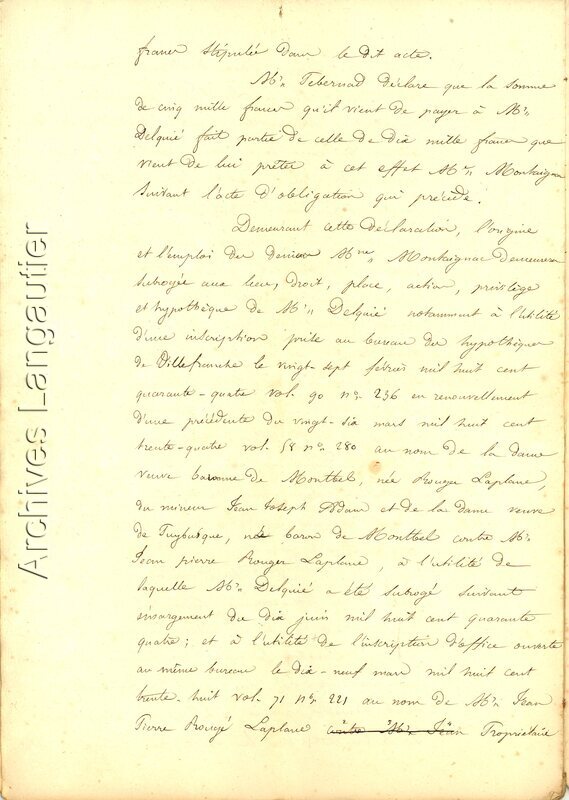 francs stipulée dans le dit acte.
Mr. Tebernad déclare que la somme
de cinq mille francs qu'il vient de payer à Mr.
Delquié fait partie de celle de dix mille francs que
vient de lui prêter à cet effet Mme Montaignac
suivant l'acte d'obligation qui précède.
Demeurant cette déclaration, l'origine
et l'emploi des deniers Mme Montaignac demeurera
subrogée aux lieu, droit, place, action, privilège
et hypothèque de Mr. Delquié notamment à l'utilité
d'une inscription prise au bureau des hypothèques
de Villefranche le vingt-sept février mil huit cent
quarante-quatre vol. 90 no. 236 en renouvellement
d'une précédente du vingt-six mars mil huit cent
trente-quatre vol. 58 no. 280 au nom de la dame
veuve baronne de Montbel, née Rouger Laplane,
du mineur Jean Joseph Adam et de la dame veuve
de Puybusque, née baron de Montbel contre Mr.
Jean pierre Rouger Laplane, à l'utilité de
laquelle Mr. Delquié a été subrogé suivant
émargement du dix juin mil huit cent quarante
quatre; et à l'utilité de l'inscription d'office ouverte
au même bureau le dix-neuf mars mil huit cent
trente-huit vol. 71 no. 221 au nom de Mr. Jean
Pierre Rougé Laplane contre Mr. Jean Propriétaire
Archives Langautier